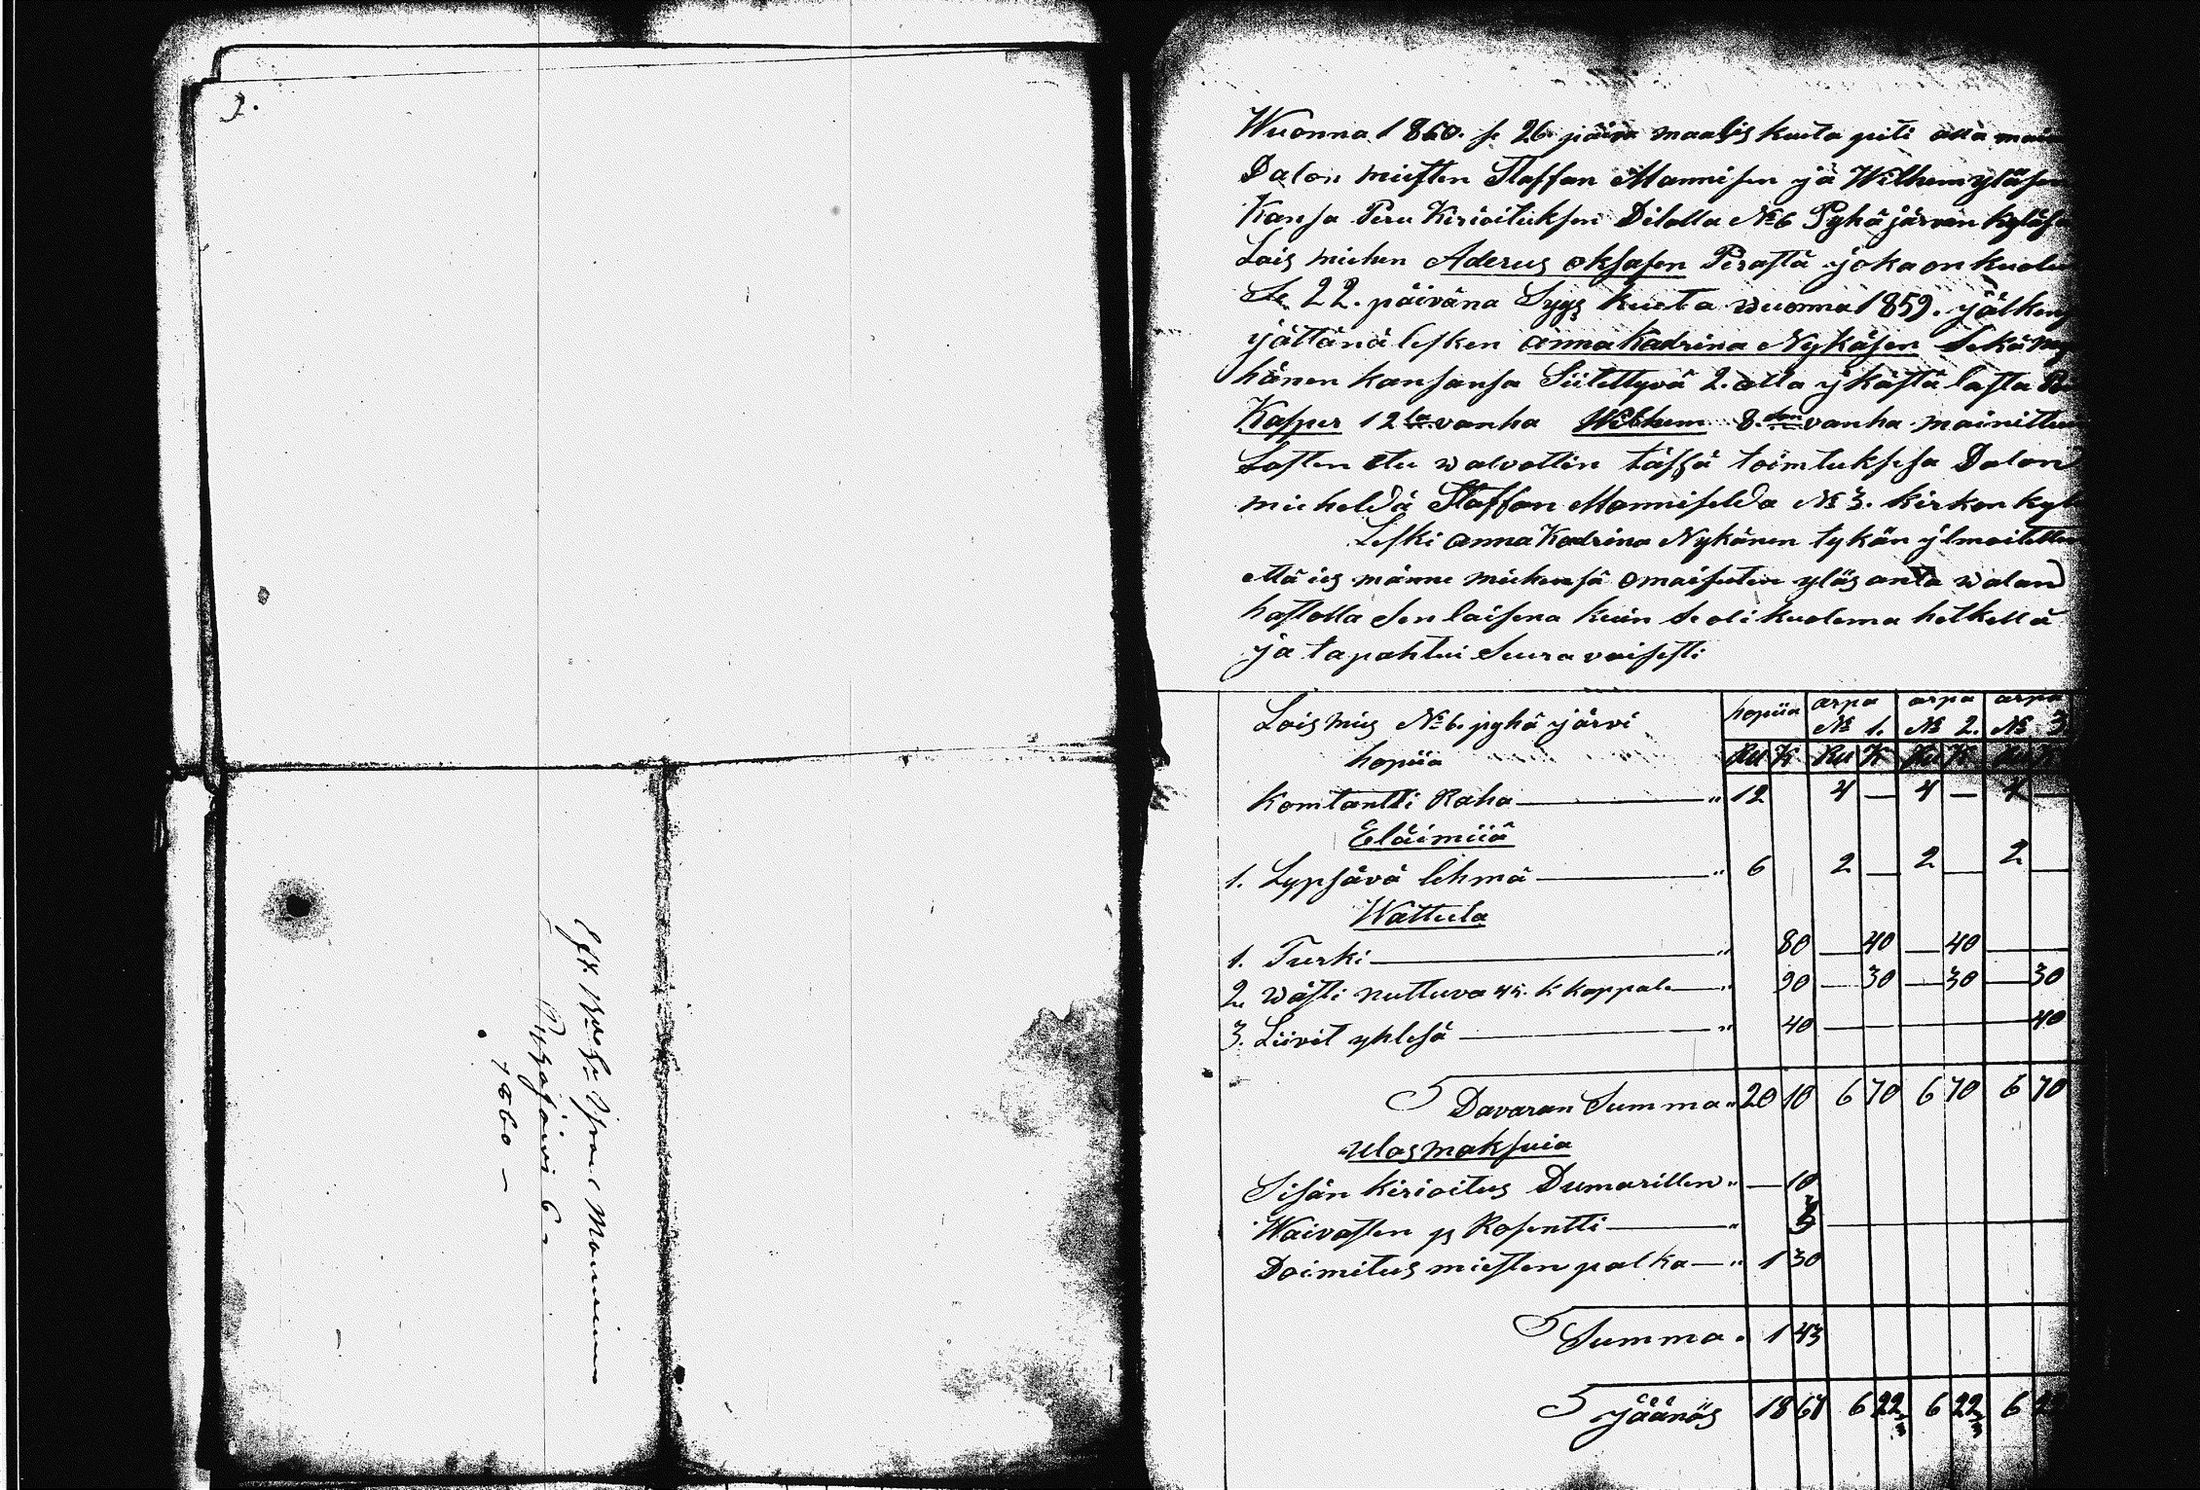 J.
Eft.
Manninen
Pyhäjärvi 6
1860 –
Wuonna 1860. se 26 päivä maalis kuuta piti alla
Dalon miesten Staffan Mannisen ja Wilhem yläsen
Kansa Peru Kirioituksen Dilalla № 6 Pyhäjärven kyläsä
Lois miehen Aderus oksasen Perastä joka on
Se 22. päivänä Sygs kuuta wuonna 1859.
jättänä lesken anna Kadrina Nykäsen Sekä
hänen kansansa Siitettyvä 2. alla ijkästä lasta
Kasper 12 ta vanha Wilhem 8. san vanha
Lasten etu walvottin tässä toimtuksesa Dalon
mieheldä Staffan Manniselda № 3. kirkon
Leski anna Kadrina Nykänen tykän ylmoitettu
että ies männe miehensä omaisuten yläs anta walan
hastolla Sen laisena kuin Se oli kuolema hetkellä
ja tapahtui Seura vaisesti
Lois mies № 6. pyhä järvi hopiia arpa № 1. arpa № 2. arpa № 3
hopiia Ru K Ru K Ru K Ru K
Komtantti Raha — " 12 4 — 4 — 4 —
Eläimiiä
1. Lypsävä lehmä — " 6 2 — 2 — 2 —
Wattula
1. Turki — " 80 — 40 — 40 — —
2. wästi nuttuva 45. K kappale — " 90 — 30 — 30 — 30
3. Liivit yhtesä — " 40 — — — 40
Davaran Summa " 20 10 6 70 6 70 6 70
Ulosmaksuia
Sisän kirioitus Dumarillen " — 10
Waivasten prosentti — " 3
Doimitus miesten palka — " 1 30
Summa " 1 43
Jäänös 18 67 6 22 6 22 6 22